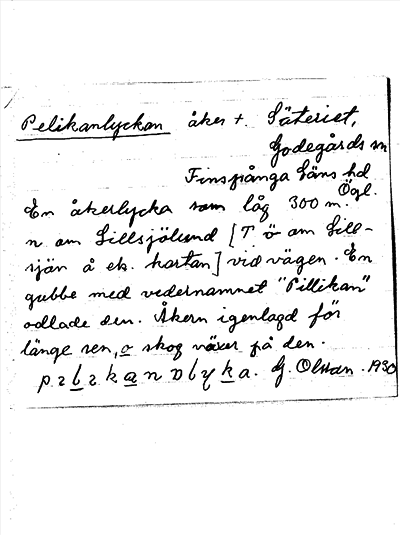 Pelikanlyckan åker +. Säteriet,
Godegårds sn
Finspånga läns hd
Ögl.
En åkerlycka som låg 300 m.
n om Lillsjölund [T ö om Lill-
sjön å ek. kartan] vid vägen. En
gubbe med vedernamnet "Pillikan"
odlade den. Åkern igenlagd för
länge sen, o skog växer på den.
G. Olsson. 1930